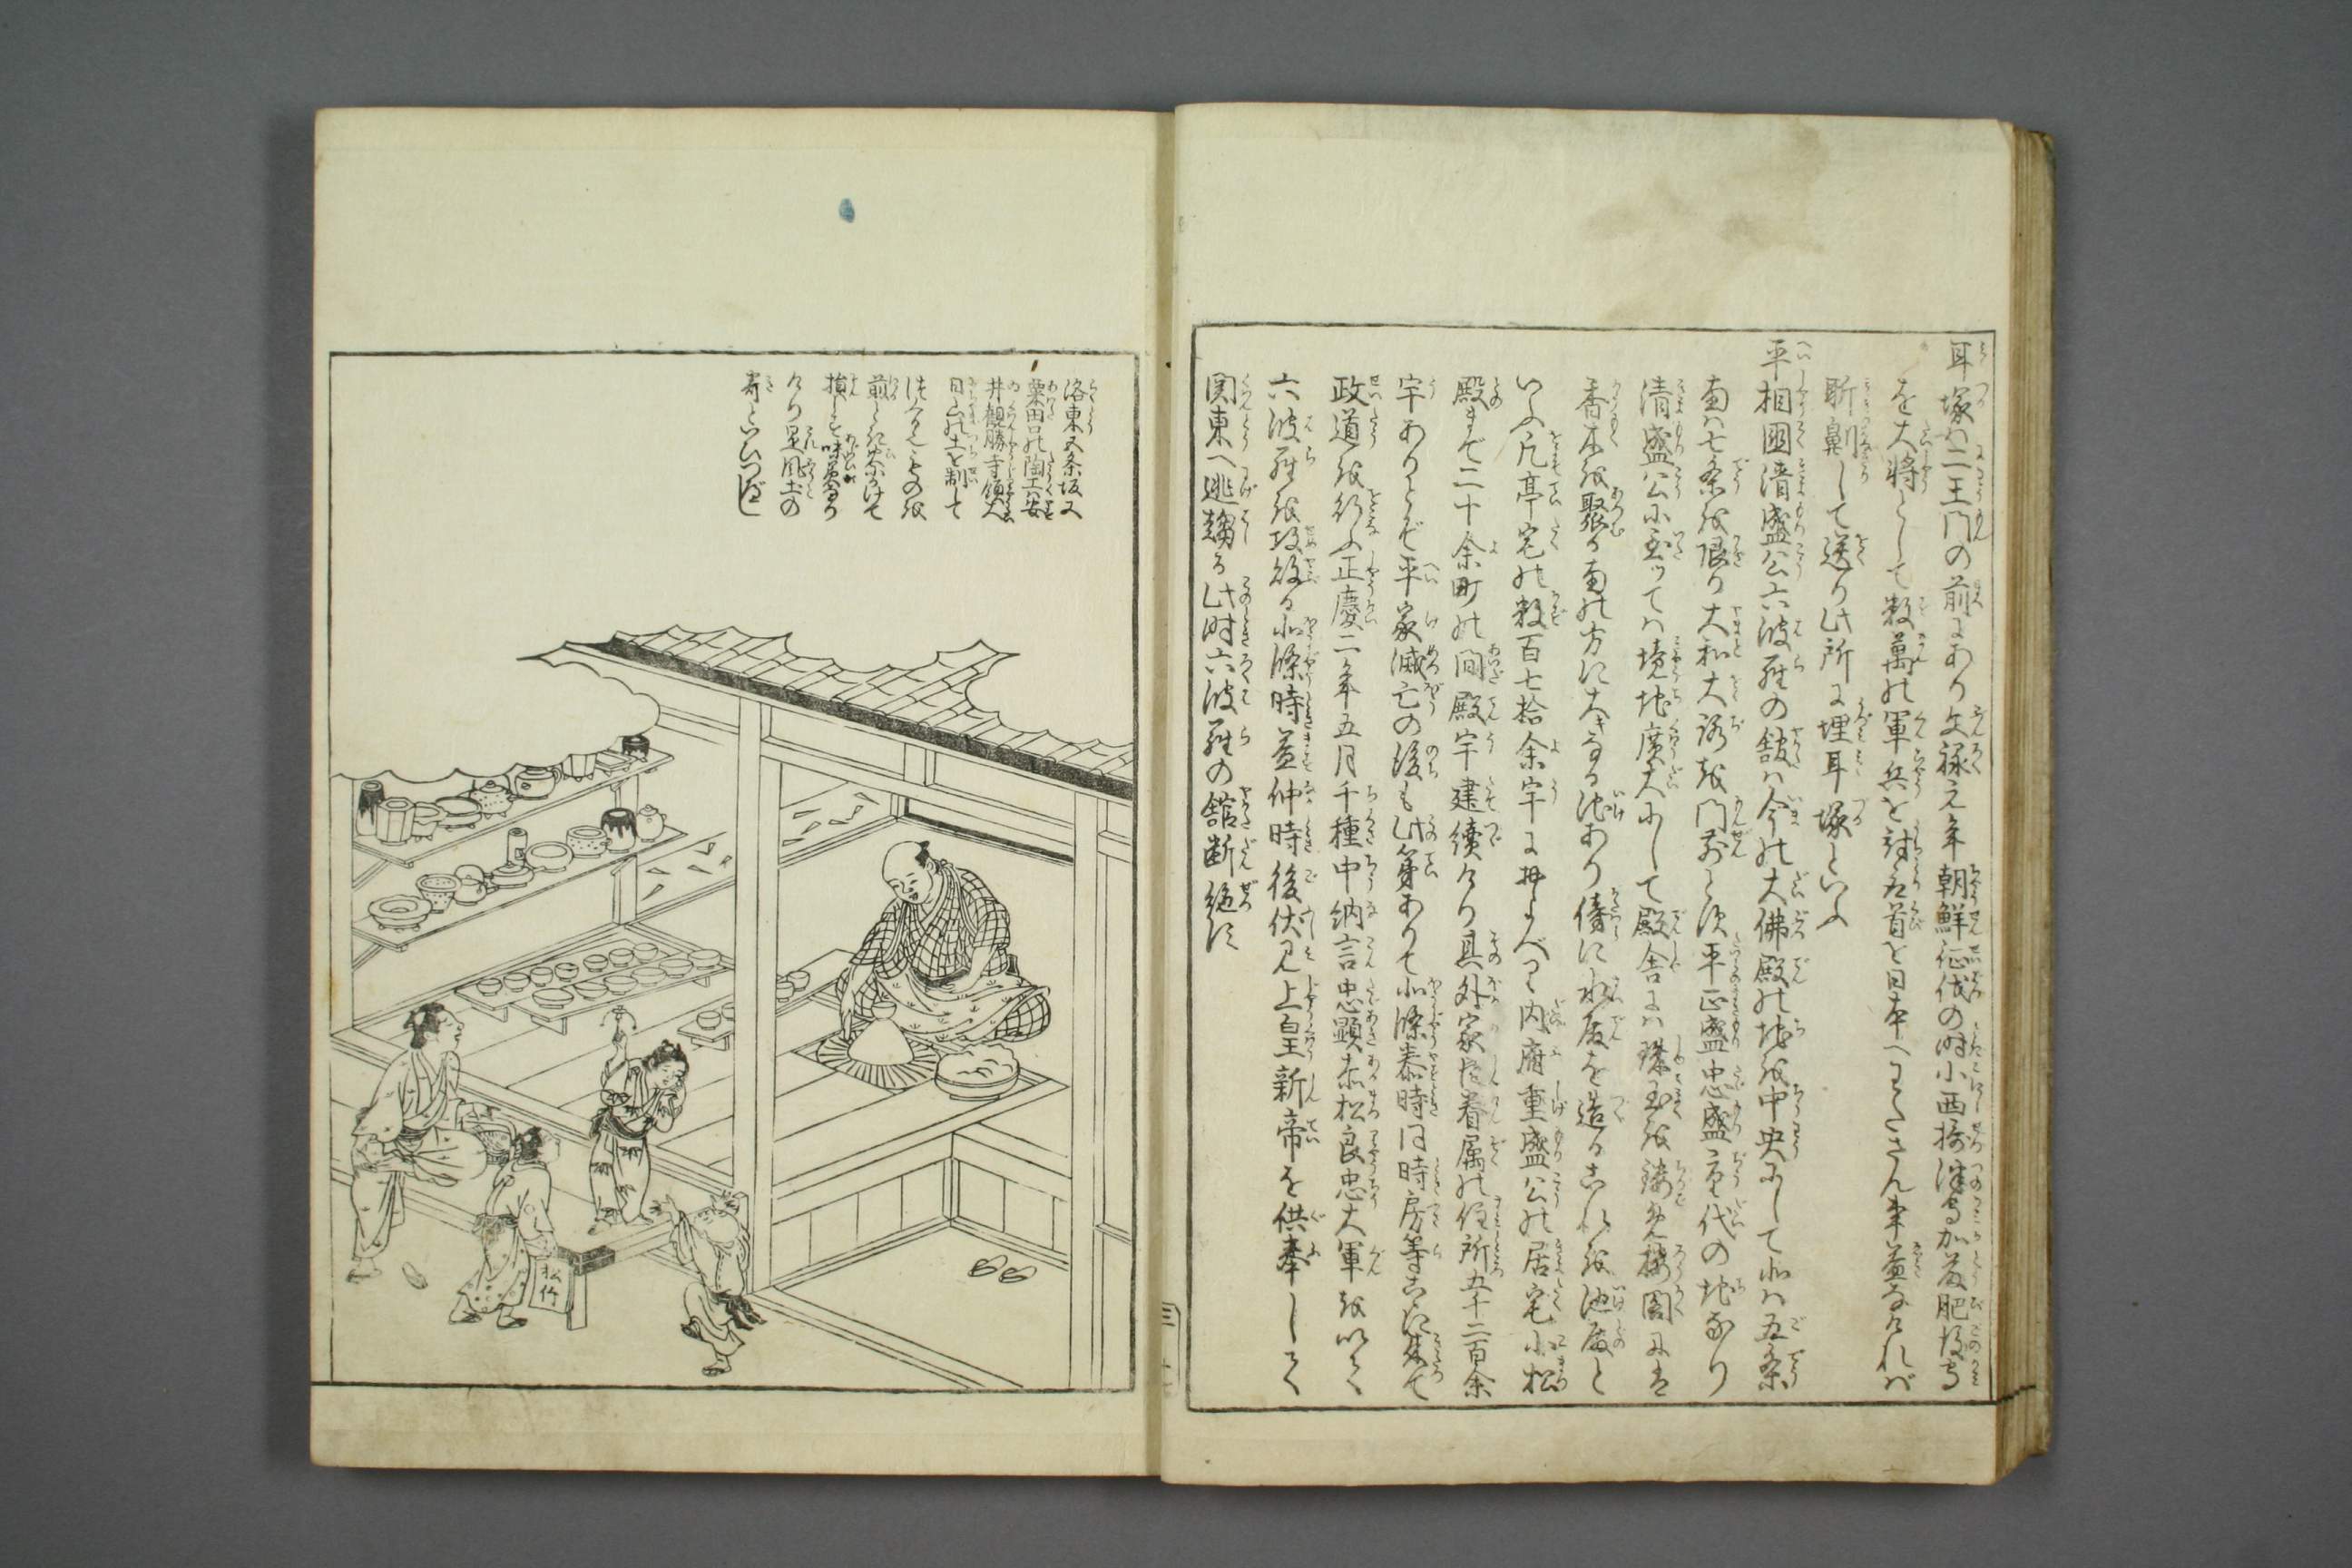 耳塚ハ二王門の前にあり文禄元年朝鮮征伐の時小西摂津守加藤肥後守
を大将として数萬の軍兵を討取首を日本へわたさん事益なけれバ
馘劓して送り此所に埋耳塚といふ
平相國清盛公六波羅の館ハ今の大佛殿の地を中央にして北ハ五条
南ハ七条を限り大和大路を門前とす平正盛忠盛二代の地なり
清盛公に至ッてハ境地廣大にして殿舎にハ珠玉を鏤め楼閣にハ
香木を聚る南の方に大きなる池あり傍に水殿を造るこれを池殿と
いふ凡亭宅の数百七拾余宇に及べり内府重盛公の居宅小松
殿まで二十余町の間殿宇建續けり其外家臣眷属の住所五千二百余
宇ありとぞ平家滅亡の後も此第ありて北條泰時同時房等こゝに集て
政道を行ふ正慶二年五月千種中納言忠顕赤松良忠大軍を以て
六波羅を攻敗る北條時益仲時後伏見上皇新帝を供奉して
関東へ逃趨る此時六波羅の舘断絶す
洛東五条坂又
粟田口の陶工ハ安
井観勝寺領大
日山の土を制して
はんなりものを
煎じ茶かけて
損じも味ひ
けり是風土の
寄といひつべし
松竹